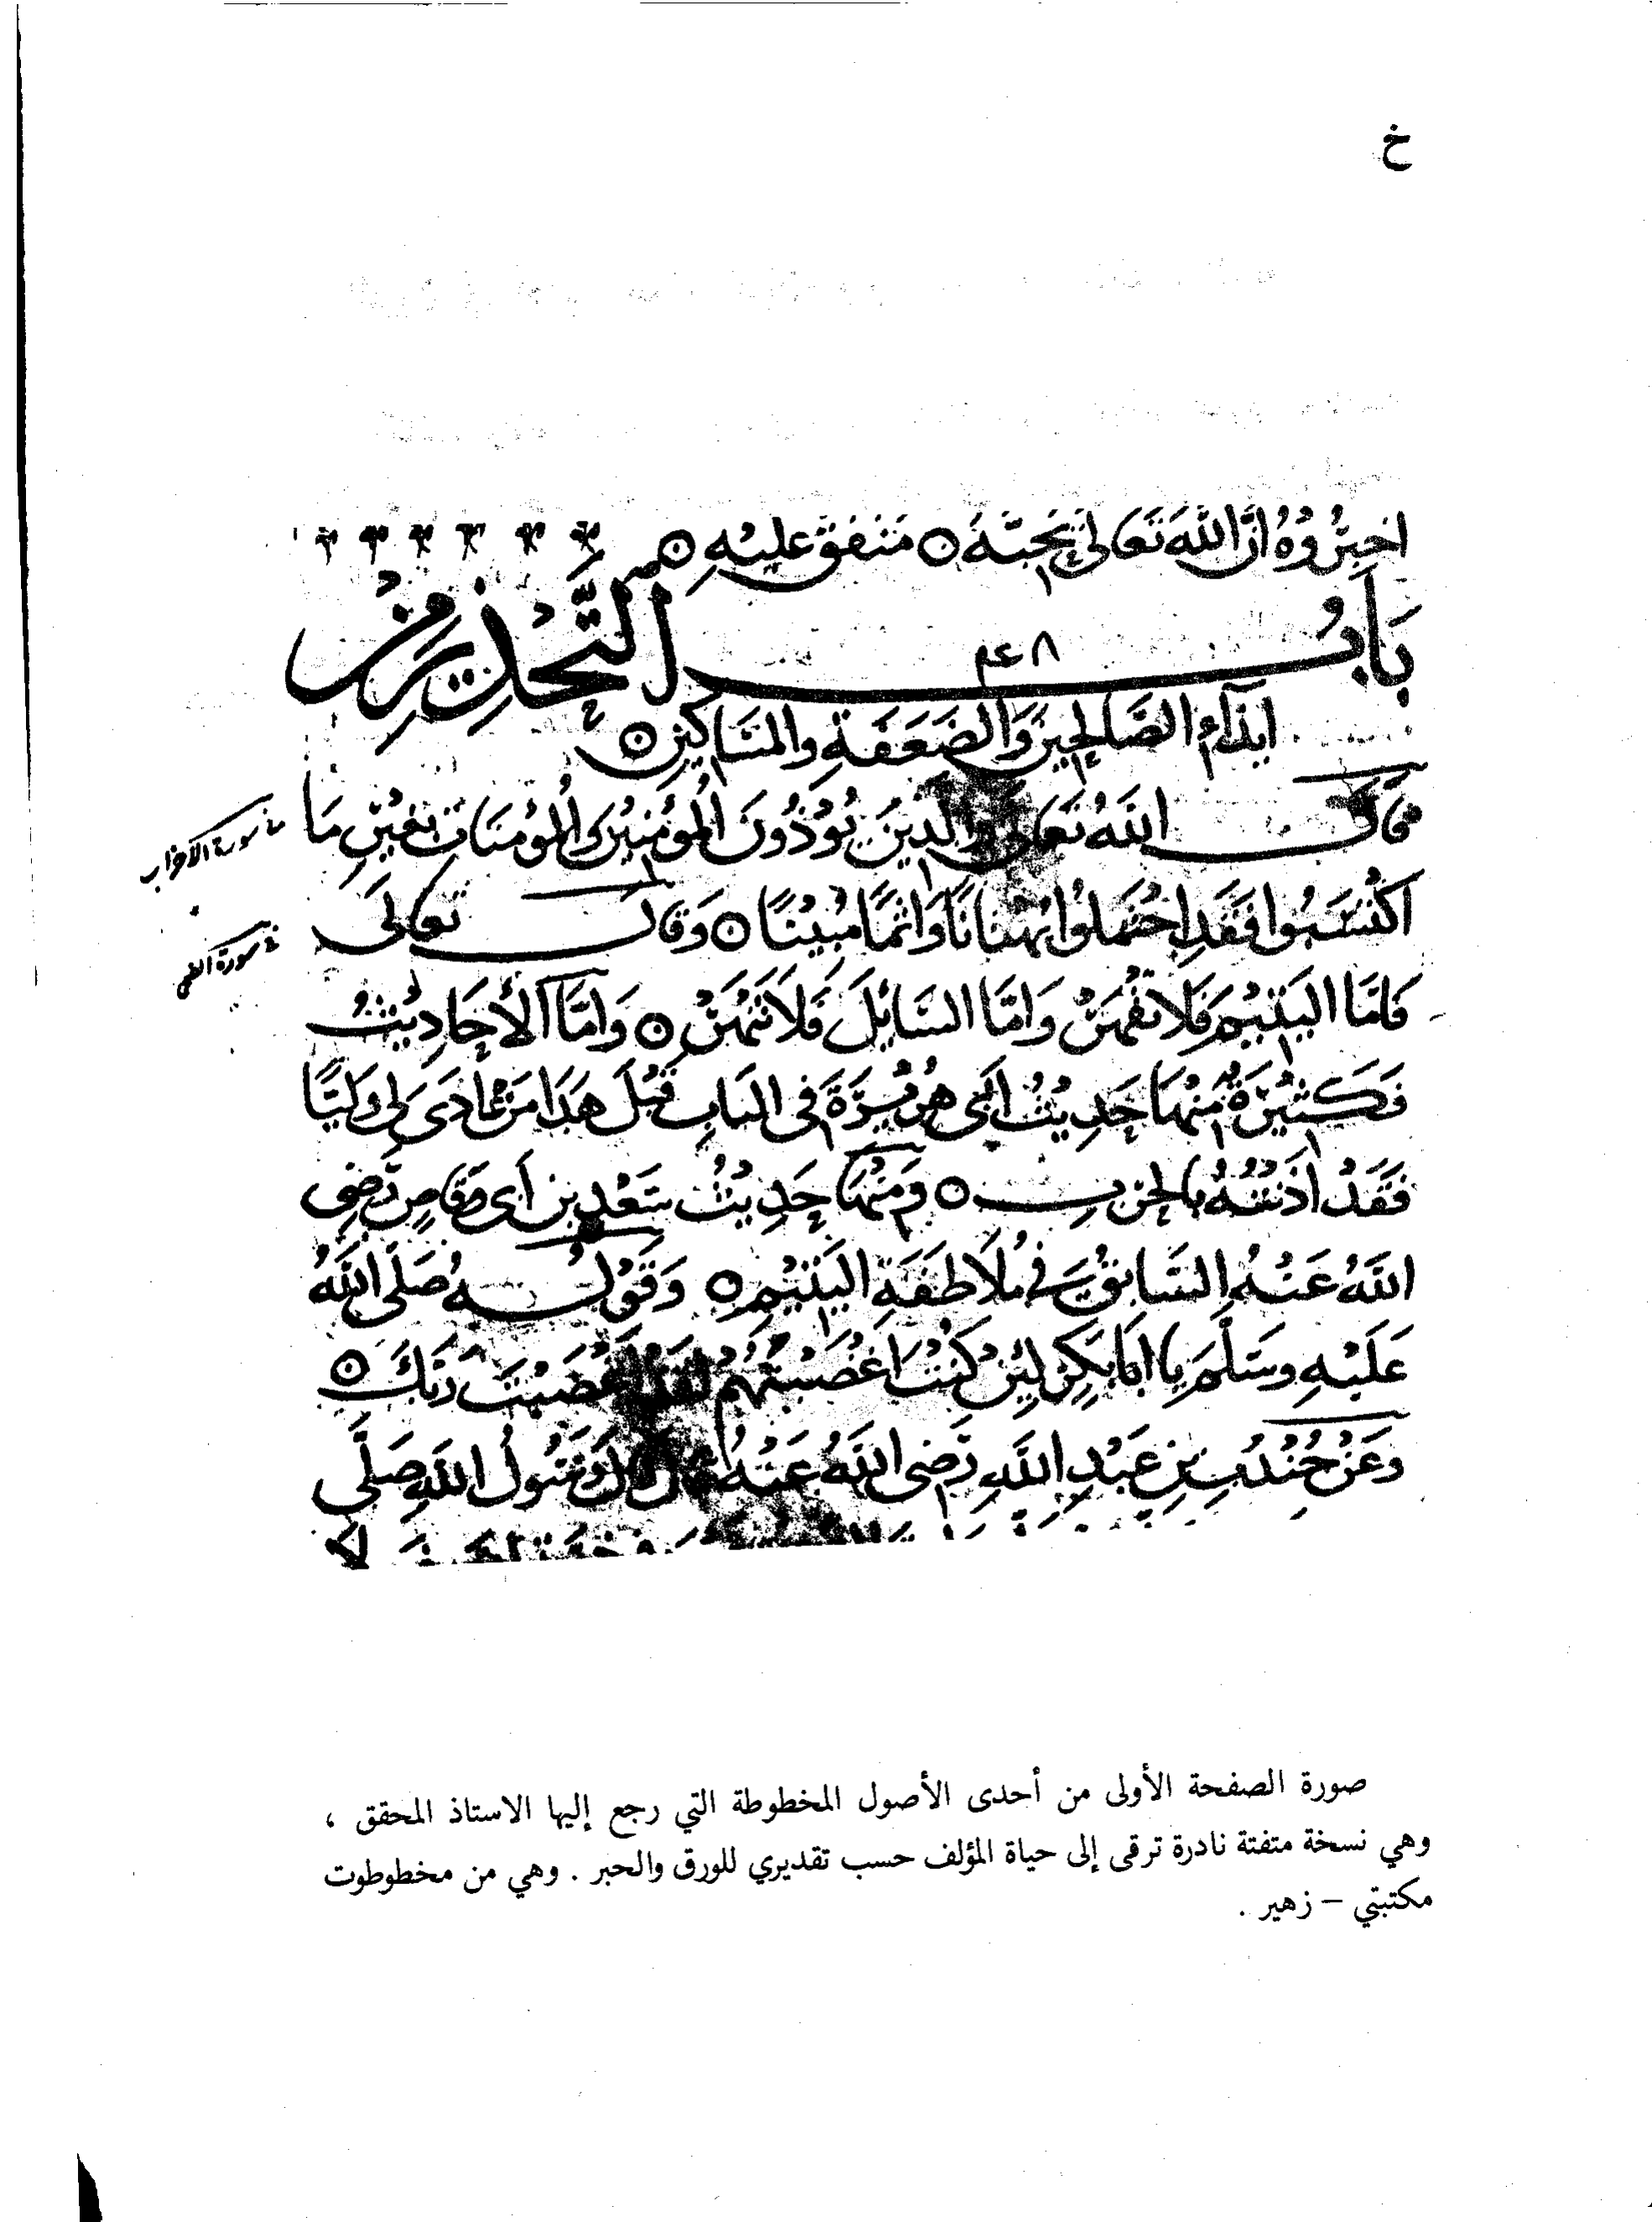 خ
اخبروه ان الله تعالى يحبه ٥ متفق عليه ٥
باب ٤٨ التحذير من
ايذاء الصالحين والضعفة والمساكين ٥
قال الله تعالى والذين يؤذون المؤمنين والمؤمنات بغير ما
سورة الاحزاب
اكتسبوا فقد احتملوا بهتانا واثما مبينا ٥ وقال تعالى
سورة الضحى
فاما اليتيم فلا تقهر واما السائل فلا تنهر ٥ واما الأحاديث
فكثيرة منها حديث ابى هريرة فى الباب قبل هذا من عادى لى وليا
فقد اذنته بالحرب ٥ ومنها حديث سعد بن أبى وقاص رضى
الله عنه السابق فى ملاطفة اليتيم ٥ وقوله صلى الله
عليه وسلم يا ابا بكر لئن كنت اغضبتهم لقد اغضبت ربك ٥
وعن جندب بن عبد الله رضى الله عنه قال قال رسول الله صلى
صورة الصفحة الأولى من أحدى الأصول المخطوطة التي رجع إليها الاستاذ المحقق ،
وهي نسخة متفتة نادرة ترقى إلى حياة المؤلف حسب تقديري للورق والحبر . وهي من مخطوطوت
مكتبتي – زهير .